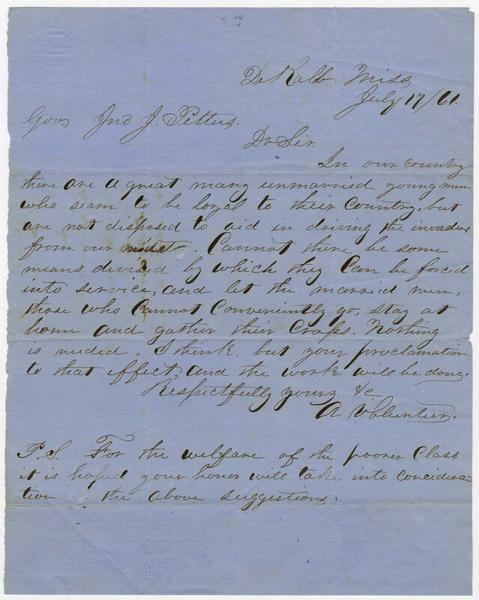 De Kalb Miss
July 17/61
Gov Jno J. Pettus.
Dr Sir
In our country
there are a great many unmarried young men
who seam to be loyal to their Country. but
are not disposed to aid in driving the invaders
from our midst. Cannot there be some
means divised by which they Can be forced
into service, and let the married men,
those who Cannot Conveniently go, stay at
home and gather their Crops. Nothing
is needed, I think, but your proclamation
to that effect, and the work will be done.
Respectfully yours &c
A Volunteer.
P.S. For the welfare of the poorer Class
it is hoped your honor will take into considera
tion the above suggestions.